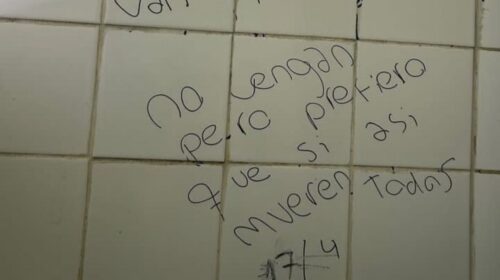 no vengan
pero prefiero
que si asi
mueren todas
17/4